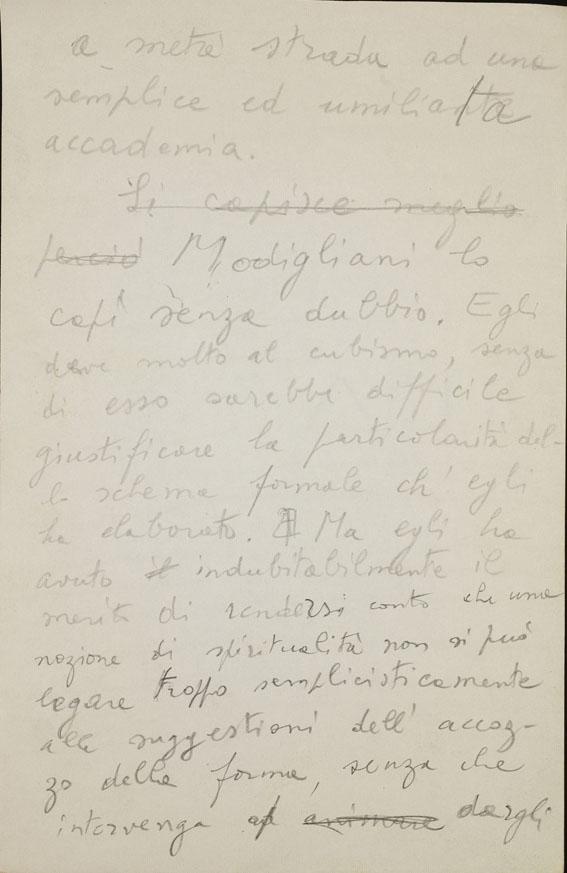 a metà strada ad una
semplice ed umiliata
accademia.
Si capisce meglio
perciò Modigliani lo
capì senza dubbio. Egli
deve molto al cubismo, senza
di esso sarebbe difficile
giustificare la particolarità del-
lo schema formale ch'egli
ha elaborato. Ma egli ha
avuto il indubitabilmente il
merito di rendersi conto che una
nozione di spiritualità non si può
legare troppo semplicisticamente
alle suggestioni dell'accoz-
zo della forma, senza che
intervenga ad animare dargli